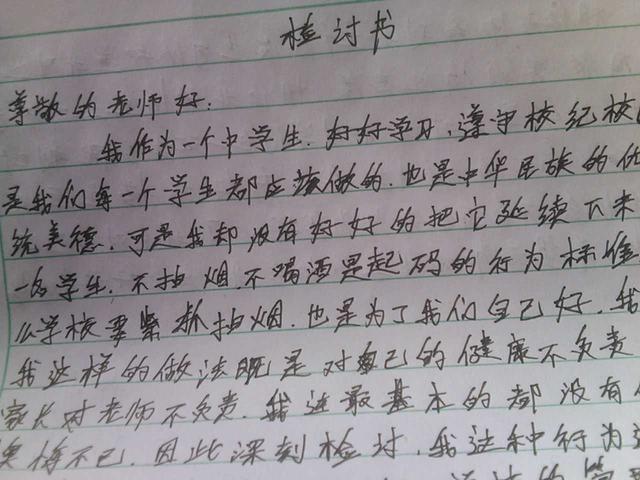 检讨书
尊敬的老师好:
我作为一个中学生.好好学习,遵守校纪校
是我们每一个学生都应该做的.也是中华民族的优
统美德.可是我却没有好好的把它延续下来
一名学生.不抽烟.不喝酒是起码的行为标准
么学校要紧抓抽烟.也是为了我们自己好.我
我这样的做法既是对自己的健康不负责
家长对老师不负责.我连最基本的都没有
悔不已.因此深刻检讨.我这种行为